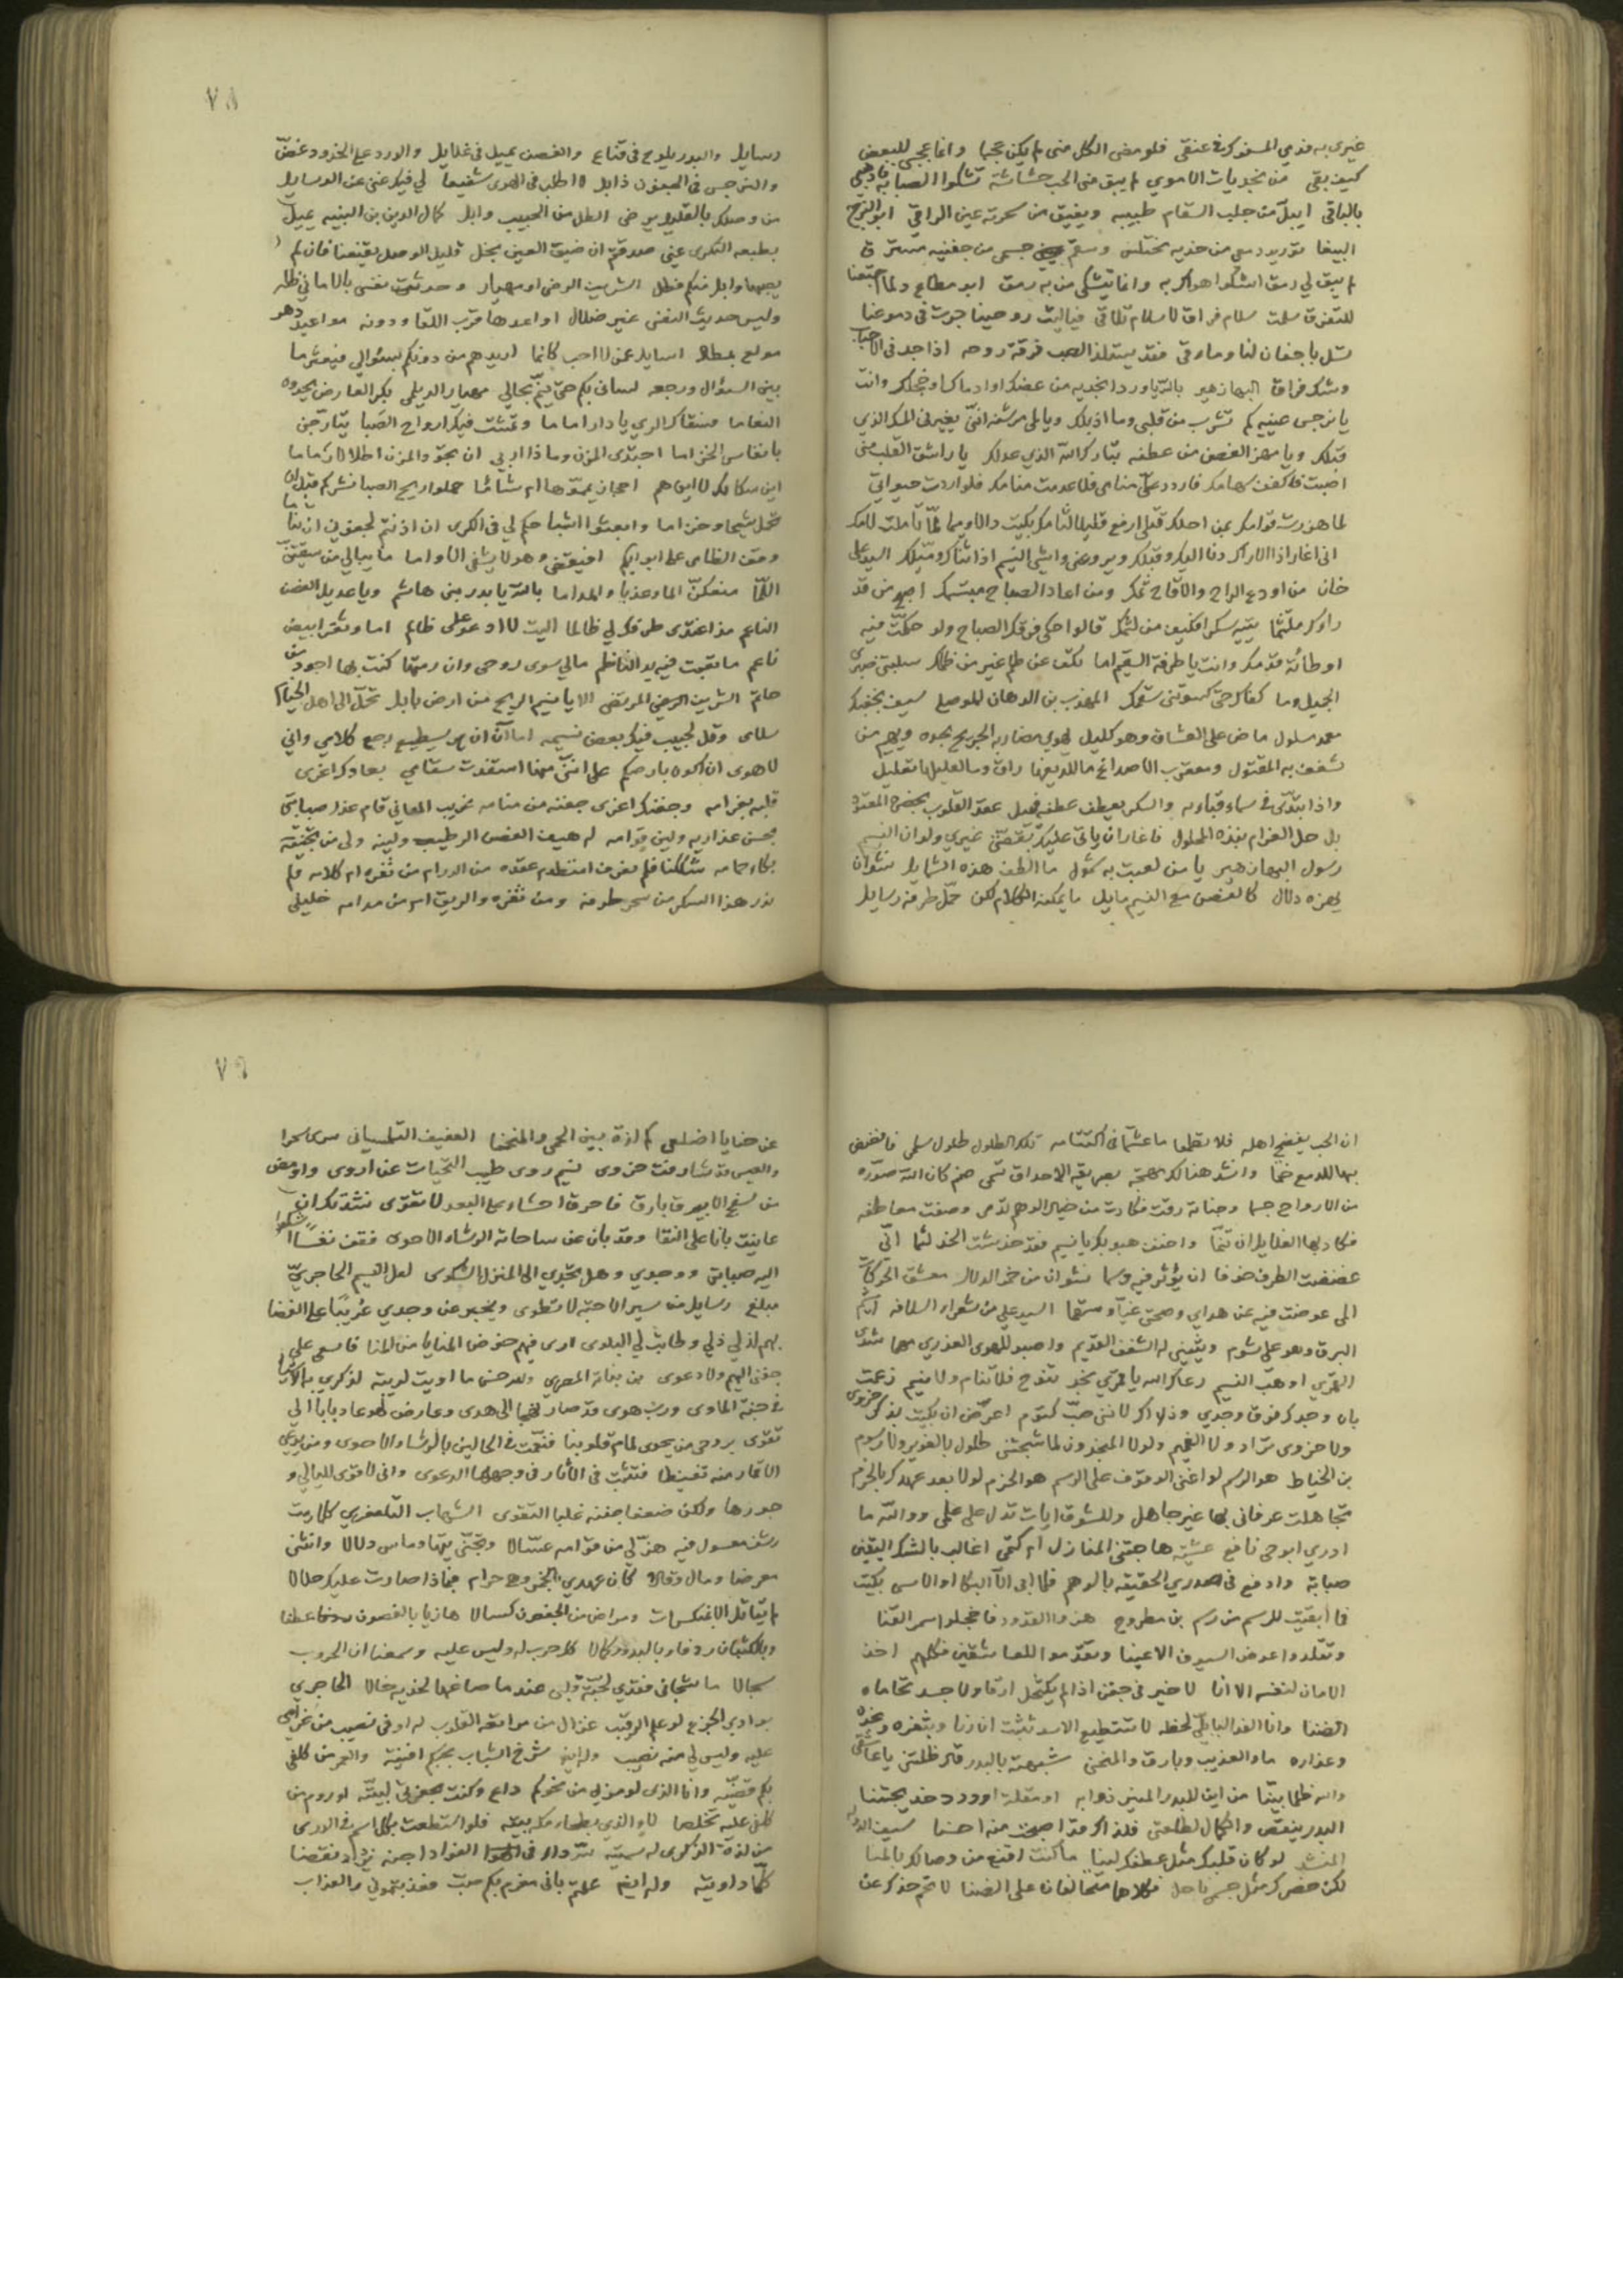 غيري به فدمي المسفوك في عنقي فلو مضى الكل مني لم يكن عجبا وانما عجبي للبعض
كيف بقي من نجديات الاموي لم يبق مني الحب حشاشة تشكوا الصبابة فاذهبي
بالباقي ايبل من جلب السقام طبيبه ويفيق من سحرته عين الراقي ابو الفرج
الببغا توريد دمعي من خديه مختلس وسقم جسمي من جفنيه مسترق
لم يبق لي رمق اشكوا هواك به وانما يتشكى من به رمق ابو مطاع ولما اجتمعنا
للتفرق سلمت سلام فراق لا سلام تلاقي فياليت روحينا جرت في دموعنا
تسل باجفان لنا وماقي فقد يستلذ الصب فرقة روحه اذا جد في الاحباب
وشك فراق البهازهير بالله يا وردا بخديه من عضك او ادماك او خجلك وانت
يا نرجس عينيه كم تشرب من قلبي وما اذبلك ويا لمى مرشفه انني يغيرني للمسك الذي
قبلك ويا مهز الغصن من عطفه تبارك الله الذي عدلك يا راشق القلب مني
اصبت فاكفف سهامك فاردد علي منامي فلا عدمت منامك فلو اردت حيواتي
لما هززت قوامك بمن احلك قلبي ارفع قليلا لثامك بكيت
اني اغار اذا الاراك دنا اليك وقبلك ويروعني واشي النسيم اذا ثناك وميلك السيد علي
خان من اودع الراح والاقاح فمك ومن اعاد الصباح مبتسمك اصبح من قد
راك ملتثما يتيه سكرا فكيف من لثمك قالوا حكى فرقك الصباح ولو حكت فيه
اوطائه قدمك وانت يا طرفه السقيم اما تكف عن ظلم غير من ظلمك سلبتني صبري
الجميل وما كفاك حتى كسوتني سقمك المهذب بن الدهان الموصلي سيف بجفنك
مغمد مسلول ماض على العشاق وهو كليل يهوي مضاربه الجريح بحده ويهيم من
شغف به المقتول ومعقرب الاصداغ ما للديغها راق وما لعليلها تعليل
واذا تبدى في سماء قبائه والسكر يعطف عطفه فيميل عقد القلوب بخصره المعقود
بل حل العزام بنده المحلول فاغار ان ياتي عليك بقصتي غيري ولو ان النسيم
رسول البهازهير يا من لعبت به شمول ما الطف هذه الشمايل نشوان
يهزه دلال كالغصن مع النسيم مايل ما يمكنه الكلام لكن حمل طرفه رسايل
٧٨
رسايل والبدر يلوح في قناع والغصن يميل في غلايل والورد على الخدود غض
والنرجس في العيون ذابل لا اطلب في الهوى شفيعا لي فيك غنى عن الوسايل
من وصلك بالقليل يرضى الطل من الحبيب وابل كمال الدين بن النبيه يميل
بطبعه التركي عني صدقتم ان ضيق العين بخل قليل الوصل يقنعنا فان لم
يصبها وابل منكم فطل الشريف الرضى او مهيار وحدثت نفسي بالاماني ظلة
وليس حديث النفس غير ضلال اواعدها قرب اللقا ودونه مواعيد دهر
مولع بمطال اسايل عمن لا احب كانما اريدهم من دونكم بسؤالي فيعثر ما
بين السؤال ورجعه لساني بكم حتى ينم بحالي مهيار الديلمي بكر العارض يحدوه
النعاما فسقاك الري يا دار اماما وتمشت فيك ارواح الصبا يتارجن
بانفاس الخزاما اجتدى المزن وماذا اربي ان تجود المزن اطلالا رماما
اين سكانك لا اين هم احجازا يمموها ام شاما حملوا ريح الصبا نشركم قبل ان
تحمل شيحا وخزاما وابعثوا اشباحكم لي في الكرى ان اذنتم لجفوني ان تناما
وقف الظامي على ابوابكم افيقضى وهو لا يشفي الاواما ما يبالي من سقيتن
اللما منعكن الماء عذبا والمداما بالله يا بدر بني هاشم ويا عديل الغصن
الناعم مذ اغتدى طرفك لي ظالما اليت لا ادعو على ظالم اما وثغر ابيض
ناعم ما بقيت فيه يد الناظم مالي سوى روحي وان رمتها كنت بها اجود من
حاتم الشريف الرضي المرتضى الا يا نسيم الريح من ارض بابل تحمل الى اهل الخيام
سلامي وقل لحبيب فيك بعض نسيمه اما آن ان يستطيع رجع كلامي واني
لاهوى ان اكون بارضكم على انني منها استفدت سقامي بعادك اغرى
قلبه بغرامه وجفنك اعرى جفنه من منامه غريب المعاني قام عذر صبابتي
بحسن عذاريه ولين قوامه له هيف الغصن الرطيب ولينه ولي من تجنيه
بكاء حمامه شككنا فلم نعرف انتظم عقده من الدر ام من ثغره ام كلامه فلم
ندر هذا السكر من سحر طرفه ومن ثغره والريق ام من مدامه خليلي
ان الحب يفضح اهله فلا تطلبا ما عشتما في اكتتامه تلك الطلول طلول سلمى فانفض
بها الدمع ضحا وانشد هنالك مهجة بصريفة الاحداق تحمى صنم كان الله صوره
من الارواح جسما وجناته رقت فكادت من خيال الوهم تدمى وصفت معاطفه
فكاد بها الغلايل ان تنما واخفف هبوبك يا نسيم فقد خدشت الخد لثما اني
غضضت الطرف خوفا ان يؤثر فيه وسما نشوان من خمر الدلال معشق الحركات
المى عوضت فيه عن هداي وصحتي غيا وسقما السيد علي من شعراء السلافه اشيم
البرق وهو علي شوم ويثنيني له الشغف القديم واصبو للهوى العذري مهما شدى
القمري او هب النسيم رعاك الله يا قمري نجد تنوح فلا تنام ولا نيم زعمت
بان وجدك فوق وجدي وذاك لانني صب كتوم اعرض ان بكيت بذكر حزوى
ولا حزوى تراد ولا الغميم ولولا المنجدون لما شجتني طلول بالغوير ولا رسوم
بن الخياط هو الرسم لو اغنى الوقوف على الرسم هو الحزم لولا بعد عهدك بالحزم
تجاهلت عرفاني بها غير جاهل وللشوق ايات تدل على علمي ووالله ما
ادري ابوحي نافع عشية هاجتني المنازل ام كتمي اغالب بالشك اليقين
صبابة وادفع في صدري الحقيقه بالوهم فلما ابى الا البكا او الاسى بكيت
فما ابقيت للرسم من رسم بن مطروح هزوا القدود فاخجلوا سمر القنا
وتقلدوا عوض السيوف الاعينا وتقدموا للعاشقين فكلهم اخذ
الامان لنفسه الا انا لا خير في جفن اذا لم يكتحل ارقا ولا جسد تحاماه
الضنا وانا الفدا لبابلي لحظه لا تستطيع الاسد تثبت ان رنا وبثغره وبخده
وعذاره ماء العذيب وبارق والمنحنى شبهته بالبدر قال ظلمتني يا عاشقي
والله ظلما بينا من اين للبدر المنير ذوابه او مقلة او ورد خد يجتنا
البدر ينقص والكمال لطلعتي فلذاك قد اصبحت منه احسنا سيف الدوله
المنشد لو كان قلبك مثل عطفك لينا ما كنت اقنع من وصالك بالمنا
لكن خصرك مثل جسمي ناحل فكلاهما متحالفان على الضنا لا تم خدك عن
٧٩
عن حنايا اضلعي كم لذة بين الحمى والمنحنا العفيف التلمساني سرى سحرا
والعيس قد شارفت حزوى نسيم روى طيب التحيات عن اروى واومض
من سفح الابيرق بارق فاحرق احشاء على البعد لا تقوى نشدتك ان
عاينت بانا على النقا وقد بان عن ساحاته الرشاء الاحوى فقف نفسا اشكوا
اليه صبابتي ووجدي وهل يجدي الى المنزل الشكوى لعل النسيم الحاجري
مبلغ رسايل من سير الاحبه لا تطوى ويخبر عن وجدي عريبا على الغضا
بهم لذ لي ذلي وطابت لي البلوى ارى فيهم خوض المنايا من المنا فاسعى على
جفني اليهم ولا دعوى بن نباته المصري وعد حشى ما اويت لويته لذكرى
في جنة الماوى ورب هوى قد صار للهدى وعارض لهو عاد بابا الى
تقوى بروحي من يحوى لمام قلوبنا فنعت في الحالين بالرشاء الاحوى ومن يدعي
الاقمار منه تغيظا فتثبت في الاثار في وجهها الدعوى واني لاقوى لليالي و
جورها ولكن ضعفا جفنه غلبا التقوى الشهاب التلعفري كلما رمت
رشف معسول فيه هز لي من قوامه عسالا وتجنى تيها وماس دلالا وانثنى
معرضا ومال وقالا كان عهدي بالخمر وهي حرام فبماذا صارت عليك حلالا
لم يقاتل الا بمنكسرات ومراض من الجفون كسالا هازيا بالغصون عطفا
وبالكثبان ردفا وبالبدور كمالا كل حرب له وليس عليه وسمعنا ان الحروب
سجالا ما شجاني فقدي لحبة قلبي عندما صاغها لخديه خالا الحاجري
بوادي الجزع لو علم الرقيب غزال من مراتعه القلوب له اوفى نصيب من غرامي
عليه وليس لي منه نصيب وله ايضا شرخ الشباب بحبكم افنيته والعمر من كلفي
بكم قضيته وانا الذي لو مر بي من نحوكم داع وكنت بحفرتي لبيته اوروم من
كلفي عليه تخلصا لا والذي بطحاء مكة بيته فلو استطعت بكل اسم في الورى
من لذة الذكرى له سميته نزدار في الهوا الفواد اجنه نقصنا
كلما داويته وله ايضا علمتم باني مغرم بكم صب فعذبتموني والعذاب